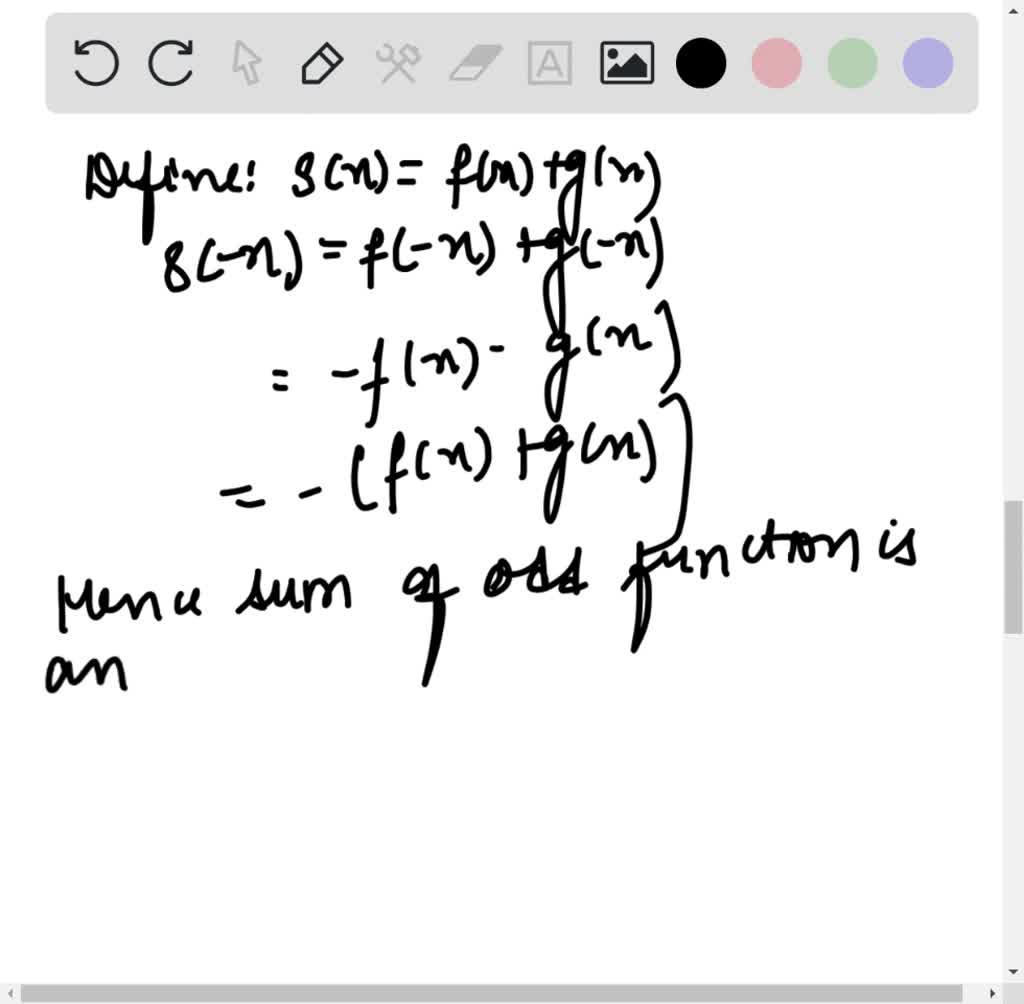 Define: s(n) = f(n) + g(n)
s(-n) = f(-n) + g(-n)
= -f(n) - g(n)
= - (f(n) + g(n))
Hence sum of odd function is
an